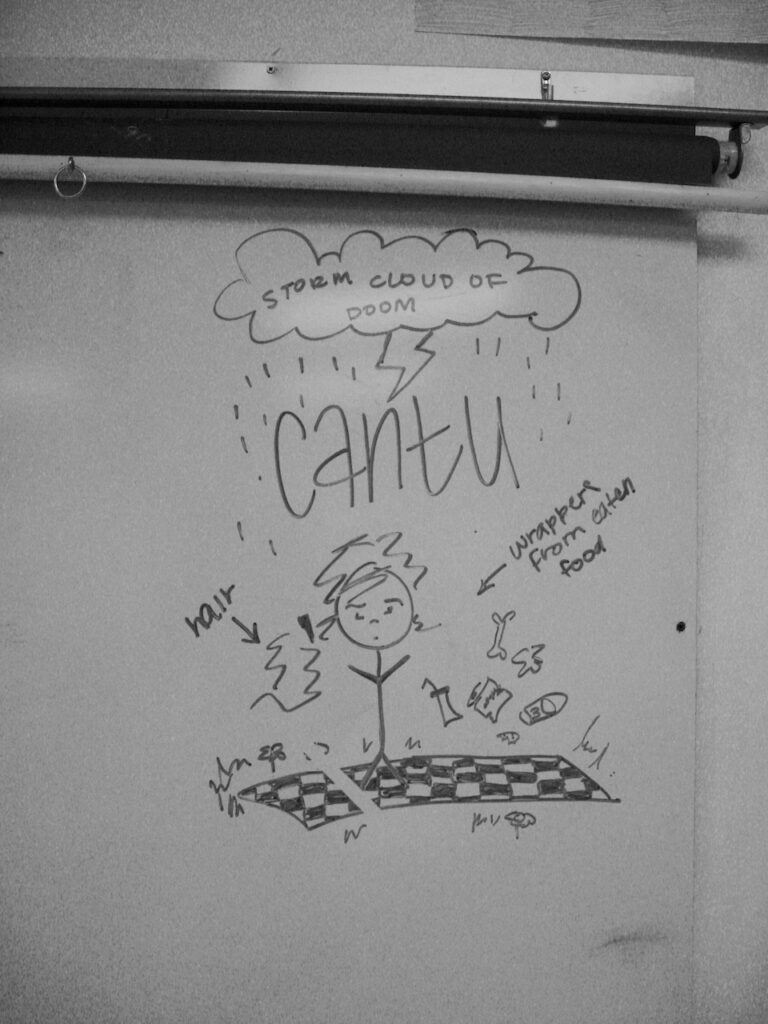 STORM CLOUD OF
DOOM
cantu
wrappers
from eaten
food
hair